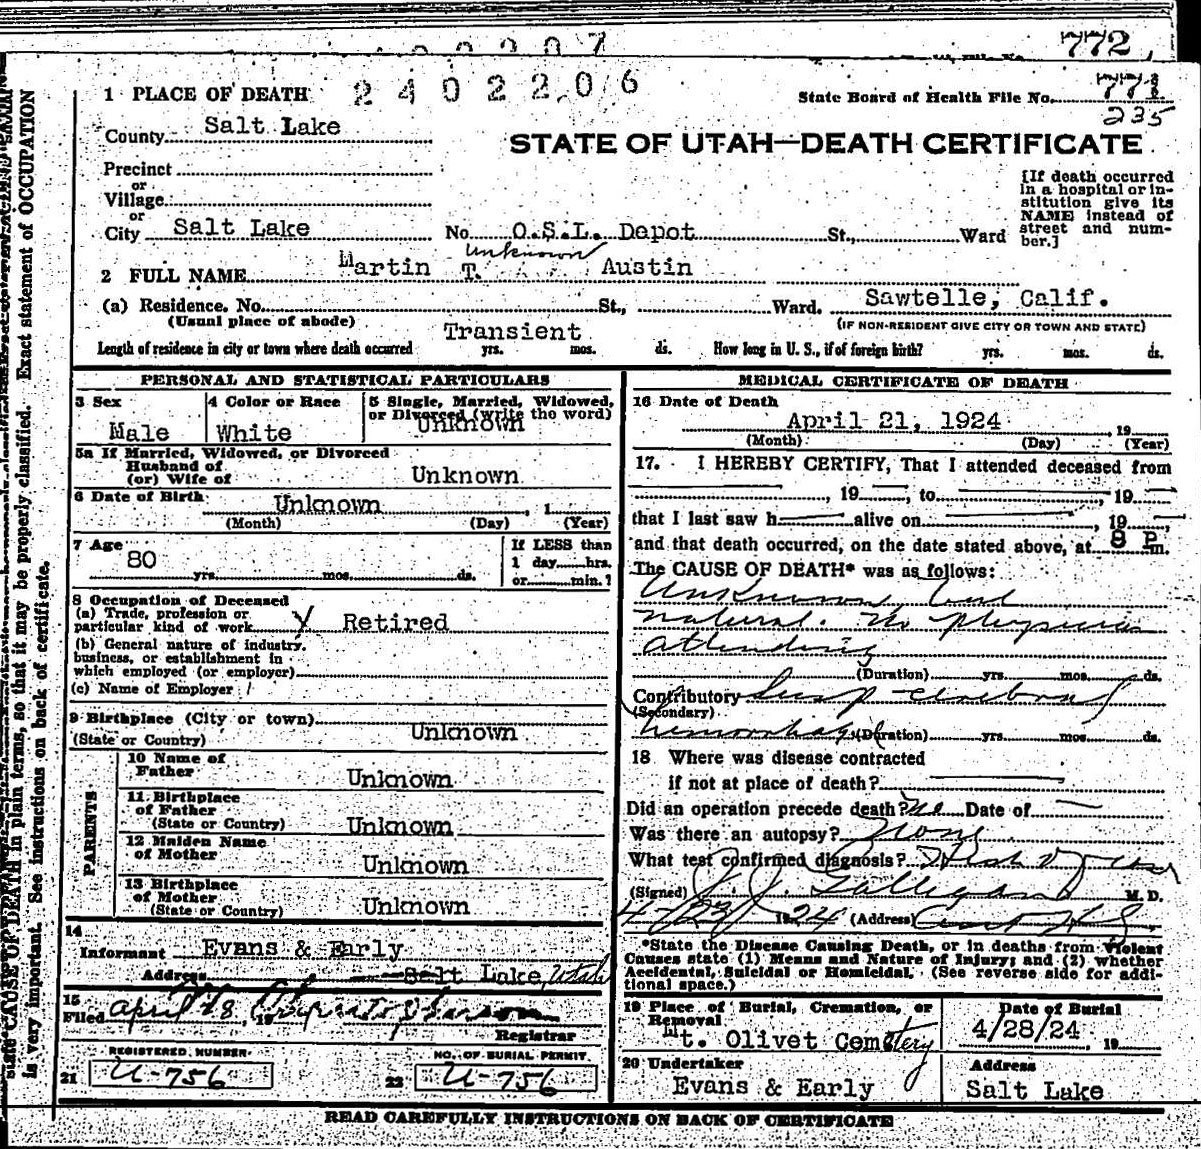 772
1 PLACE OF DEATH 2402206
State Board of Health File No. 771
235
County Salt Lake
STATE OF UTAH—DEATH CERTIFICATE
Precinct
or
Village
or
City Salt Lake No. O.S.L. Depot St., Ward
[If death occurred
in a hospital or in-
stitution give its
NAME instead of
street and num-
ber.]
unknown
2 FULL NAME Martin T. Austin
(a) Residence. No. St., Ward. Sawtelle, Calif.
(Usual place of abode) (IF NON-RESIDENT GIVE CITY OR TOWN AND STATE)
Transient
Length of residence in city or town where death occurred yrs. mos. ds. How long in U. S., if of foreign birth? yrs. mos. ds.
PERSONAL AND STATISTICAL PARTICULARS
3 Sex
Male
4 Color or Race
White
5 Single, Married, Widowed,
or Divorced (write the word)
Unknown
5a If Married, Widowed, or Divorced
Husband of
(or) Wife of Unknown
6 Date of Birth Unknown , 1
(Month) (Day) (Year)
7 Age
80 yrs. mos. ds.
If LESS than
1 day hrs.
or min.?
8 Occupation of Deceased
(a) Trade, profession or
particular kind of work Retired
(b) General nature of industry,
business, or establishment in
which employed (or employer)
(c) Name of Employer
9 Birthplace (City or town)
(State or Country) Unknown
PARENTS
10 Name of
Father Unknown
11 Birthplace
of Father
(State or Country) Unknown
12 Maiden Name
of Mother Unknown
13 Birthplace
of Mother
(State or Country) Unknown
14
Informant Evans & Early
Address Salt Lake, Utah
15
Filed April 28, 19
Registrar
REGISTERED NUMBER
21 U-756
NO. OF BURIAL PERMIT
22 U-756
MEDICAL CERTIFICATE OF DEATH
16 Date of Death
April 21, 1924 , 19
(Month) (Day) (Year)
17. I HEREBY CERTIFY, That I attended deceased from
, 19 , to , 19
that I last saw h alive on , 19 ,
and that death occurred, on the date stated above, at 8 P m.
The CAUSE OF DEATH* was as follows:
Unknown but
natural. No physician
attending
(Duration) yrs. mos. ds.
Contributory Susp cerebral
(Secondary)
hemorrhage (Duration) yrs. mos. ds.
18 Where was disease contracted
if not at place of death?
Did an operation precede death? No Date of
Was there an autopsy? None
What test confirmed diagnosis?
(Signed) J. J. Galligan M. D.
4/23/ 1924 (Address)
*State the Disease Causing Death, or in deaths from Violent
Causes state (1) Means and Nature of Injury; and (2) whether
Accidental, Suicidal or Homicidal. (See reverse side for addi-
tional space.)
19 Place of Burial, Cremation, or
Removal
Mt. Olivet Cemetery
Date of Burial
4/28/24 , 19
20 Undertaker
Evans & Early
Address
Salt Lake
READ CAREFULLY INSTRUCTIONS ON BACK OF CERTIFICATE
state CAUSE OF DEATH in plain terms, so that it may be properly classified. Exact statement of OCCUPATION
is very important. See instructions on back of certificate.